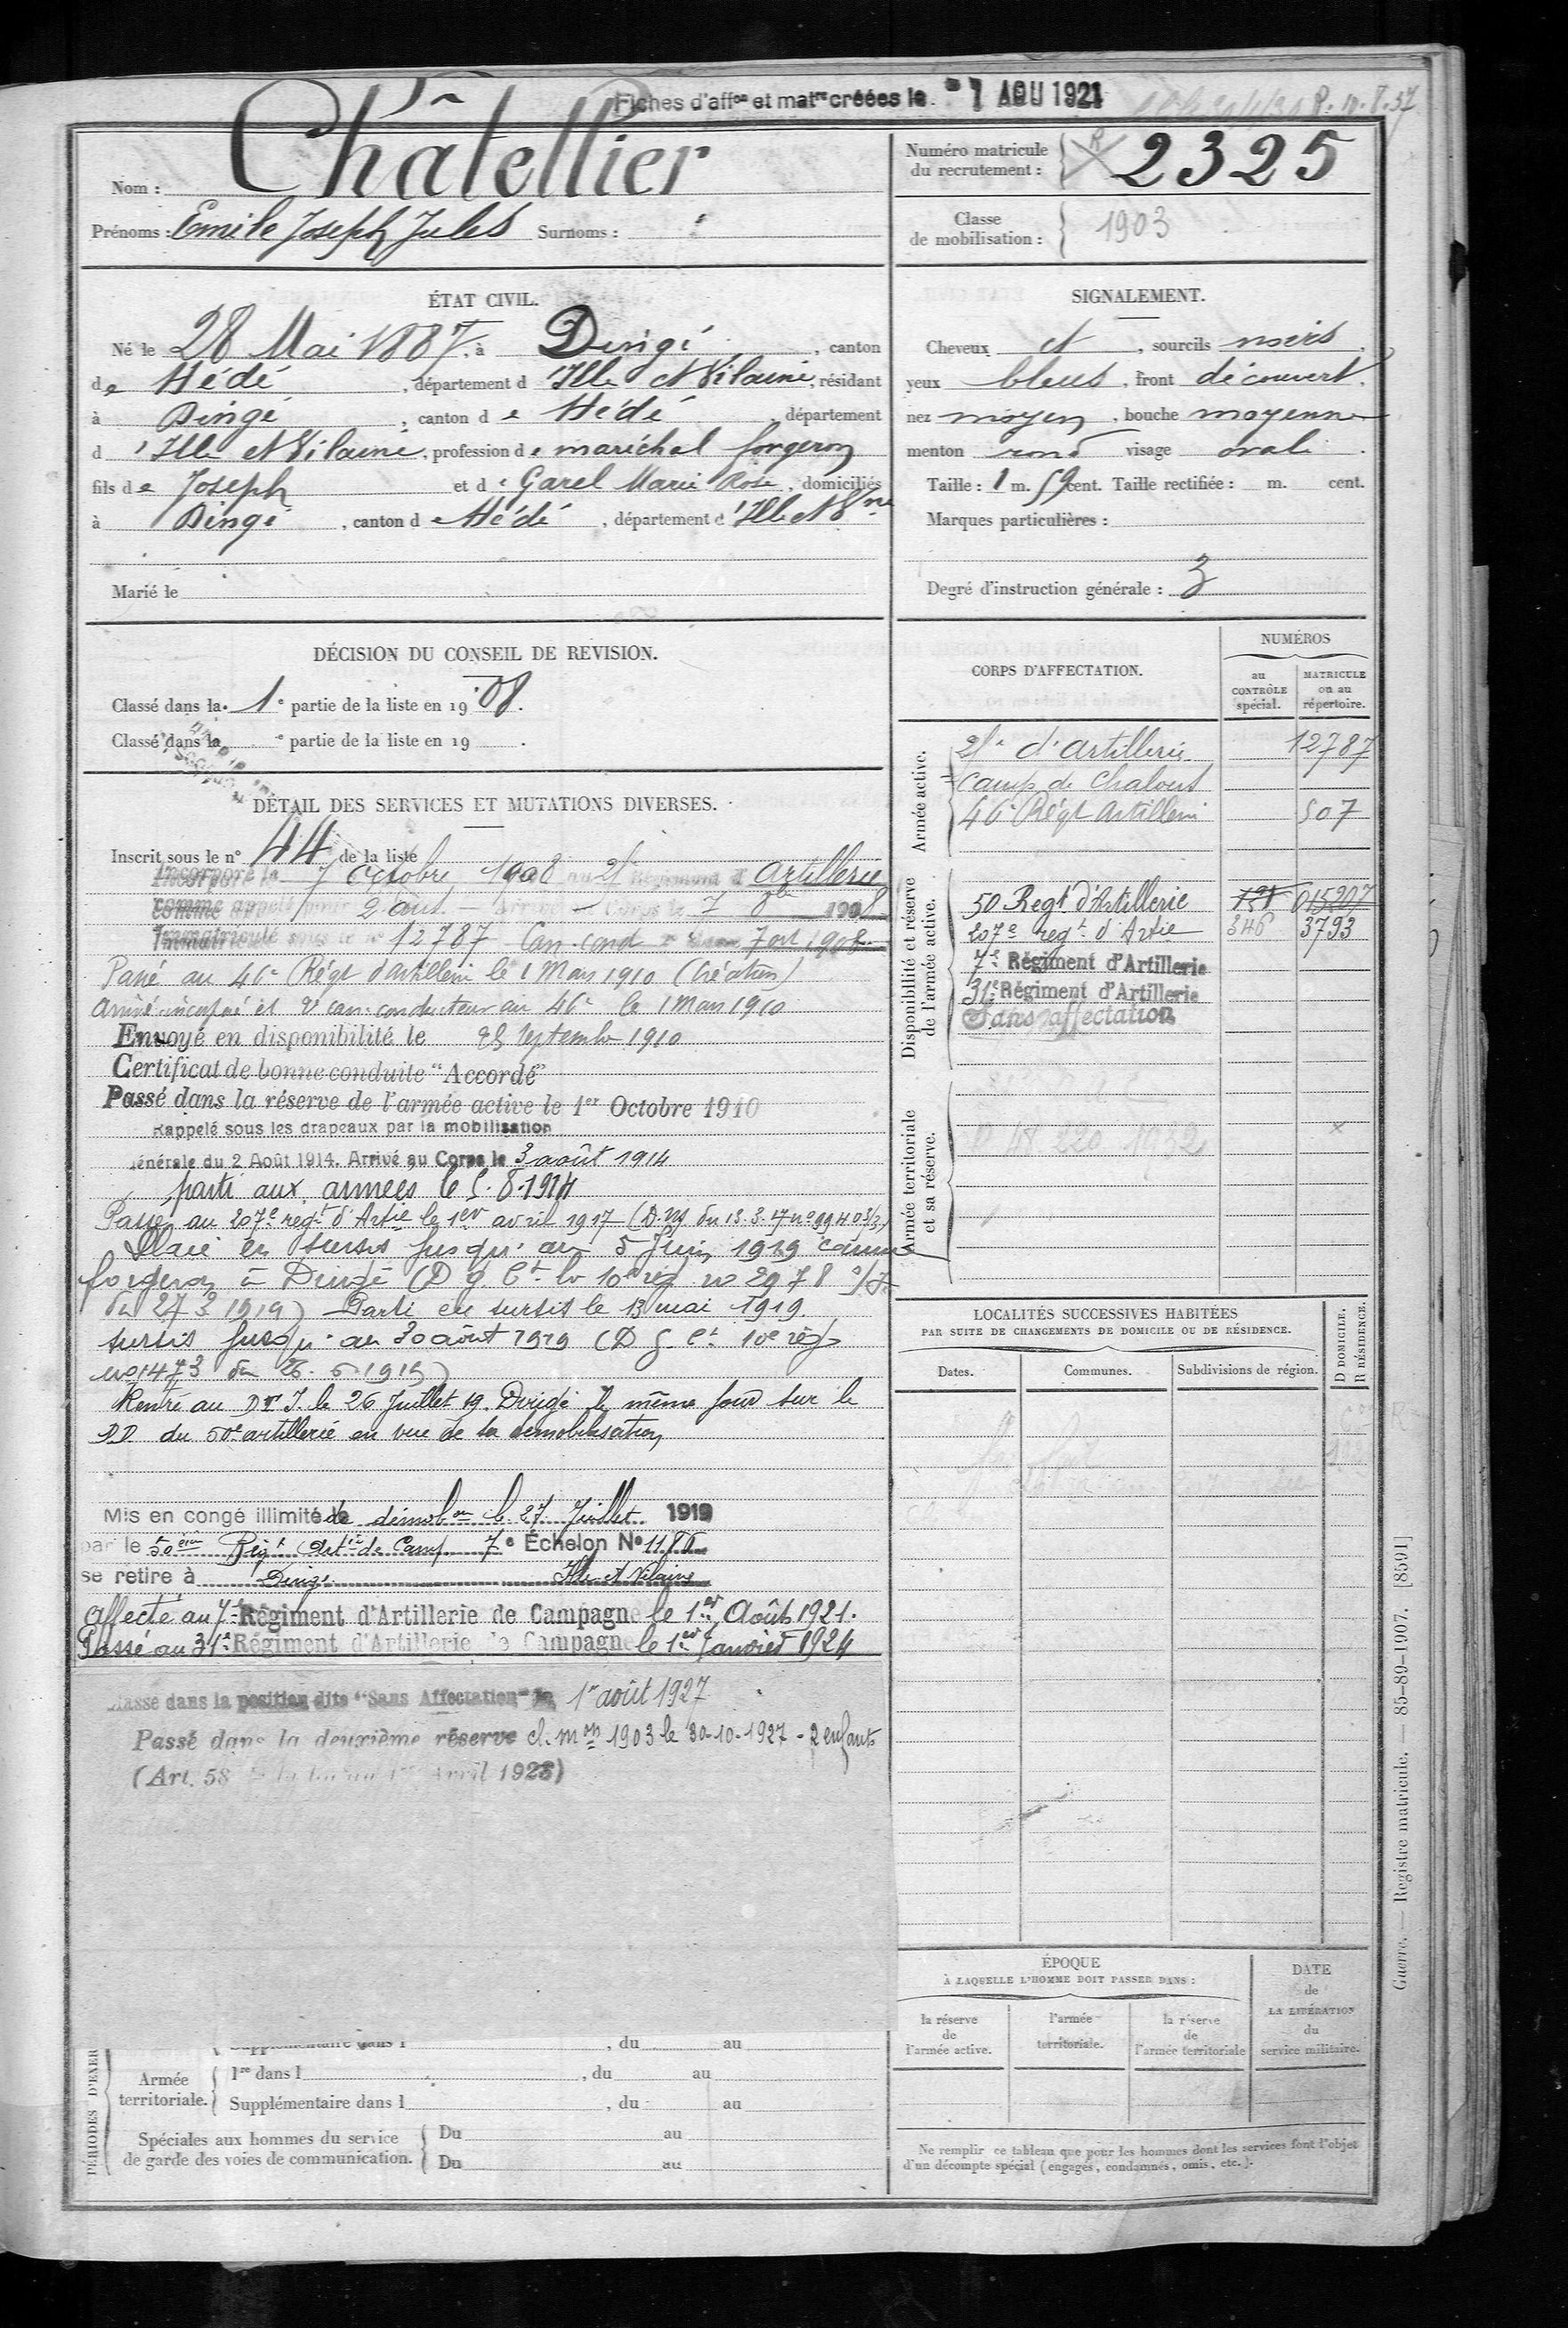 Fiches d'aff^on et mat^re créées le - 1 AOU 1921
Nom : Châtellier
Prénoms : Emile Joseph Jules Surnoms :
Numéro matricule du recrutement : 2325
Classe de mobilisation : 1903
ÉTAT CIVIL.
Né le 28 Mai 1887, à Dingé, canton
de Hédé, département d'Ille et Vilaine, résidant
à Dingé, canton de Hédé, département
d'Ille et Vilaine, profession de maréchal forgeron
fils de Joseph et de Garel Marie Rose, domiciliés
à Dingé, canton de Hédé, département d'Ille et V^ne
Marié le
SIGNALEMENT.
Cheveux et, sourcils noirs,
yeux bleus, front découvert,
nez moyen, bouche moyenne
menton rond visage ovale.
Taille : 1 m. 59 cent. Taille rectifiée : m. cent.
Marques particulières :
Degré d'instruction générale : 3
DÉCISION DU CONSEIL DE REVISION.
Classé dans la 1^e partie de la liste en 1908.
Classé dans la ^e partie de la liste en 19 .
DÉTAIL DES SERVICES ET MUTATIONS DIVERSES.
Inscrit sous le n° 44 de la liste
Incorporé le 7 octobre 1908 au Régiment d'Artillerie
comme appelé pour 2 ans. Arrivé au Corps le 7 8^bre 1908
Immatriculé sous le n° 12787 Can. cond 7 oct 1908
Passé au 46^e Régt d'artillerie le 1 Mars 1910 (Création)
Arrivé incorporé et 2^e can. conducteur au 46^e le 1 Mars 1910
Envoyé en disponibilité le 25 Septembre 1910
Certificat de bonne conduite "Accordé"
Passé dans la réserve de l'armée active le 1^er Octobre 1910
Rappelé sous les drapeaux par la mobilisation
générale du 2 Août 1914. Arrivé au Corps le 3 août 1914
parti aux armées le 5.8.1914
Passé au 207^e rég^t d'Art^ie le 1^er avril 1917 (D.M du 13.3.17 n° 99403/3)
Placé en sursis jusqu'au 5 Juin 1919 comme
forgeron à Dingé (D g C^t la 10^e rég n° 2978 s/
du 27 3 1919) Parti en sursis le 13 mai 1919
sursis jusqu'au 30 août 1919 (D g C^t 10^e rég
n° 1473 du 26.6.1919)
Rentré au D.T.I. le 26 Juillet 19. Dirigé le même jour sur le
D.D. du 50^e artillerie en vue de sa démobilisation
Mis en congé illimité de démob^on le 27 Juillet 1919
par le 50^ème Rég^t Art^ie de Camp 7^e Échelon N° 1186
se retire à Dingé Ille et Vilaine
Affecté au 7^e Régiment d'Artillerie de Campagne le 1^er Août 1921.
Passé au 31^e Régiment d'Artillerie de Campagne le 1^er Janvier 1924
Classé dans la position dite "Sans Affectation" le 1^er août 1927
Passé dans la deuxième réserve cl. m^on 1903 le 30-10-1927 - 2 enfants
(Art. 58 de la loi du 1^er Avril 1923)
CORPS D'AFFECTATION.
NUMÉROS
au CONTRÔLE spécial.
MATRICULE ou au répertoire.
Armée active.
d'artillerie 12787
Camp de Chalons
46^e Régt Artillerie 507
Disponibilité et réserve de l'armée active.
50 Reg^t d'Artillerie 015207
207^e reg^t d'Art^ie 346 3793
7^e Régiment d'Artillerie
31^e Régiment d'Artillerie
Sans affectation
Armée territoriale et sa réserve.
LOCALITÉS SUCCESSIVES HABITÉES
PAR SUITE DE CHANGEMENTS DE DOMICILE OU DE RÉSIDENCE.
D DOMICILE.
R RÉSIDENCE.
Dates. Communes. Subdivisions de région.
ÉPOQUE
À LAQUELLE L'HOMME DOIT PASSER DANS :
la réserve de l'armée active.
l'armée territoriale.
la réserve de l'armée territoriale
DATE de LA LIBÉRATION du service militaire.
Ne remplir ce tableau que pour les hommes dont les services font l'objet
d'un décompte spécial (engagés, condamnés, omis, etc.).
PÉRIODES D'EXER
Supplémentaire dans l , du au
Armée territoriale.
1^re dans l , du au
Supplémentaire dans l , du au
Spéciales aux hommes du service
de garde des voies de communication.
Du au
Du au
Guerre. — Registre matricule. — 85-89-1907. [8591]